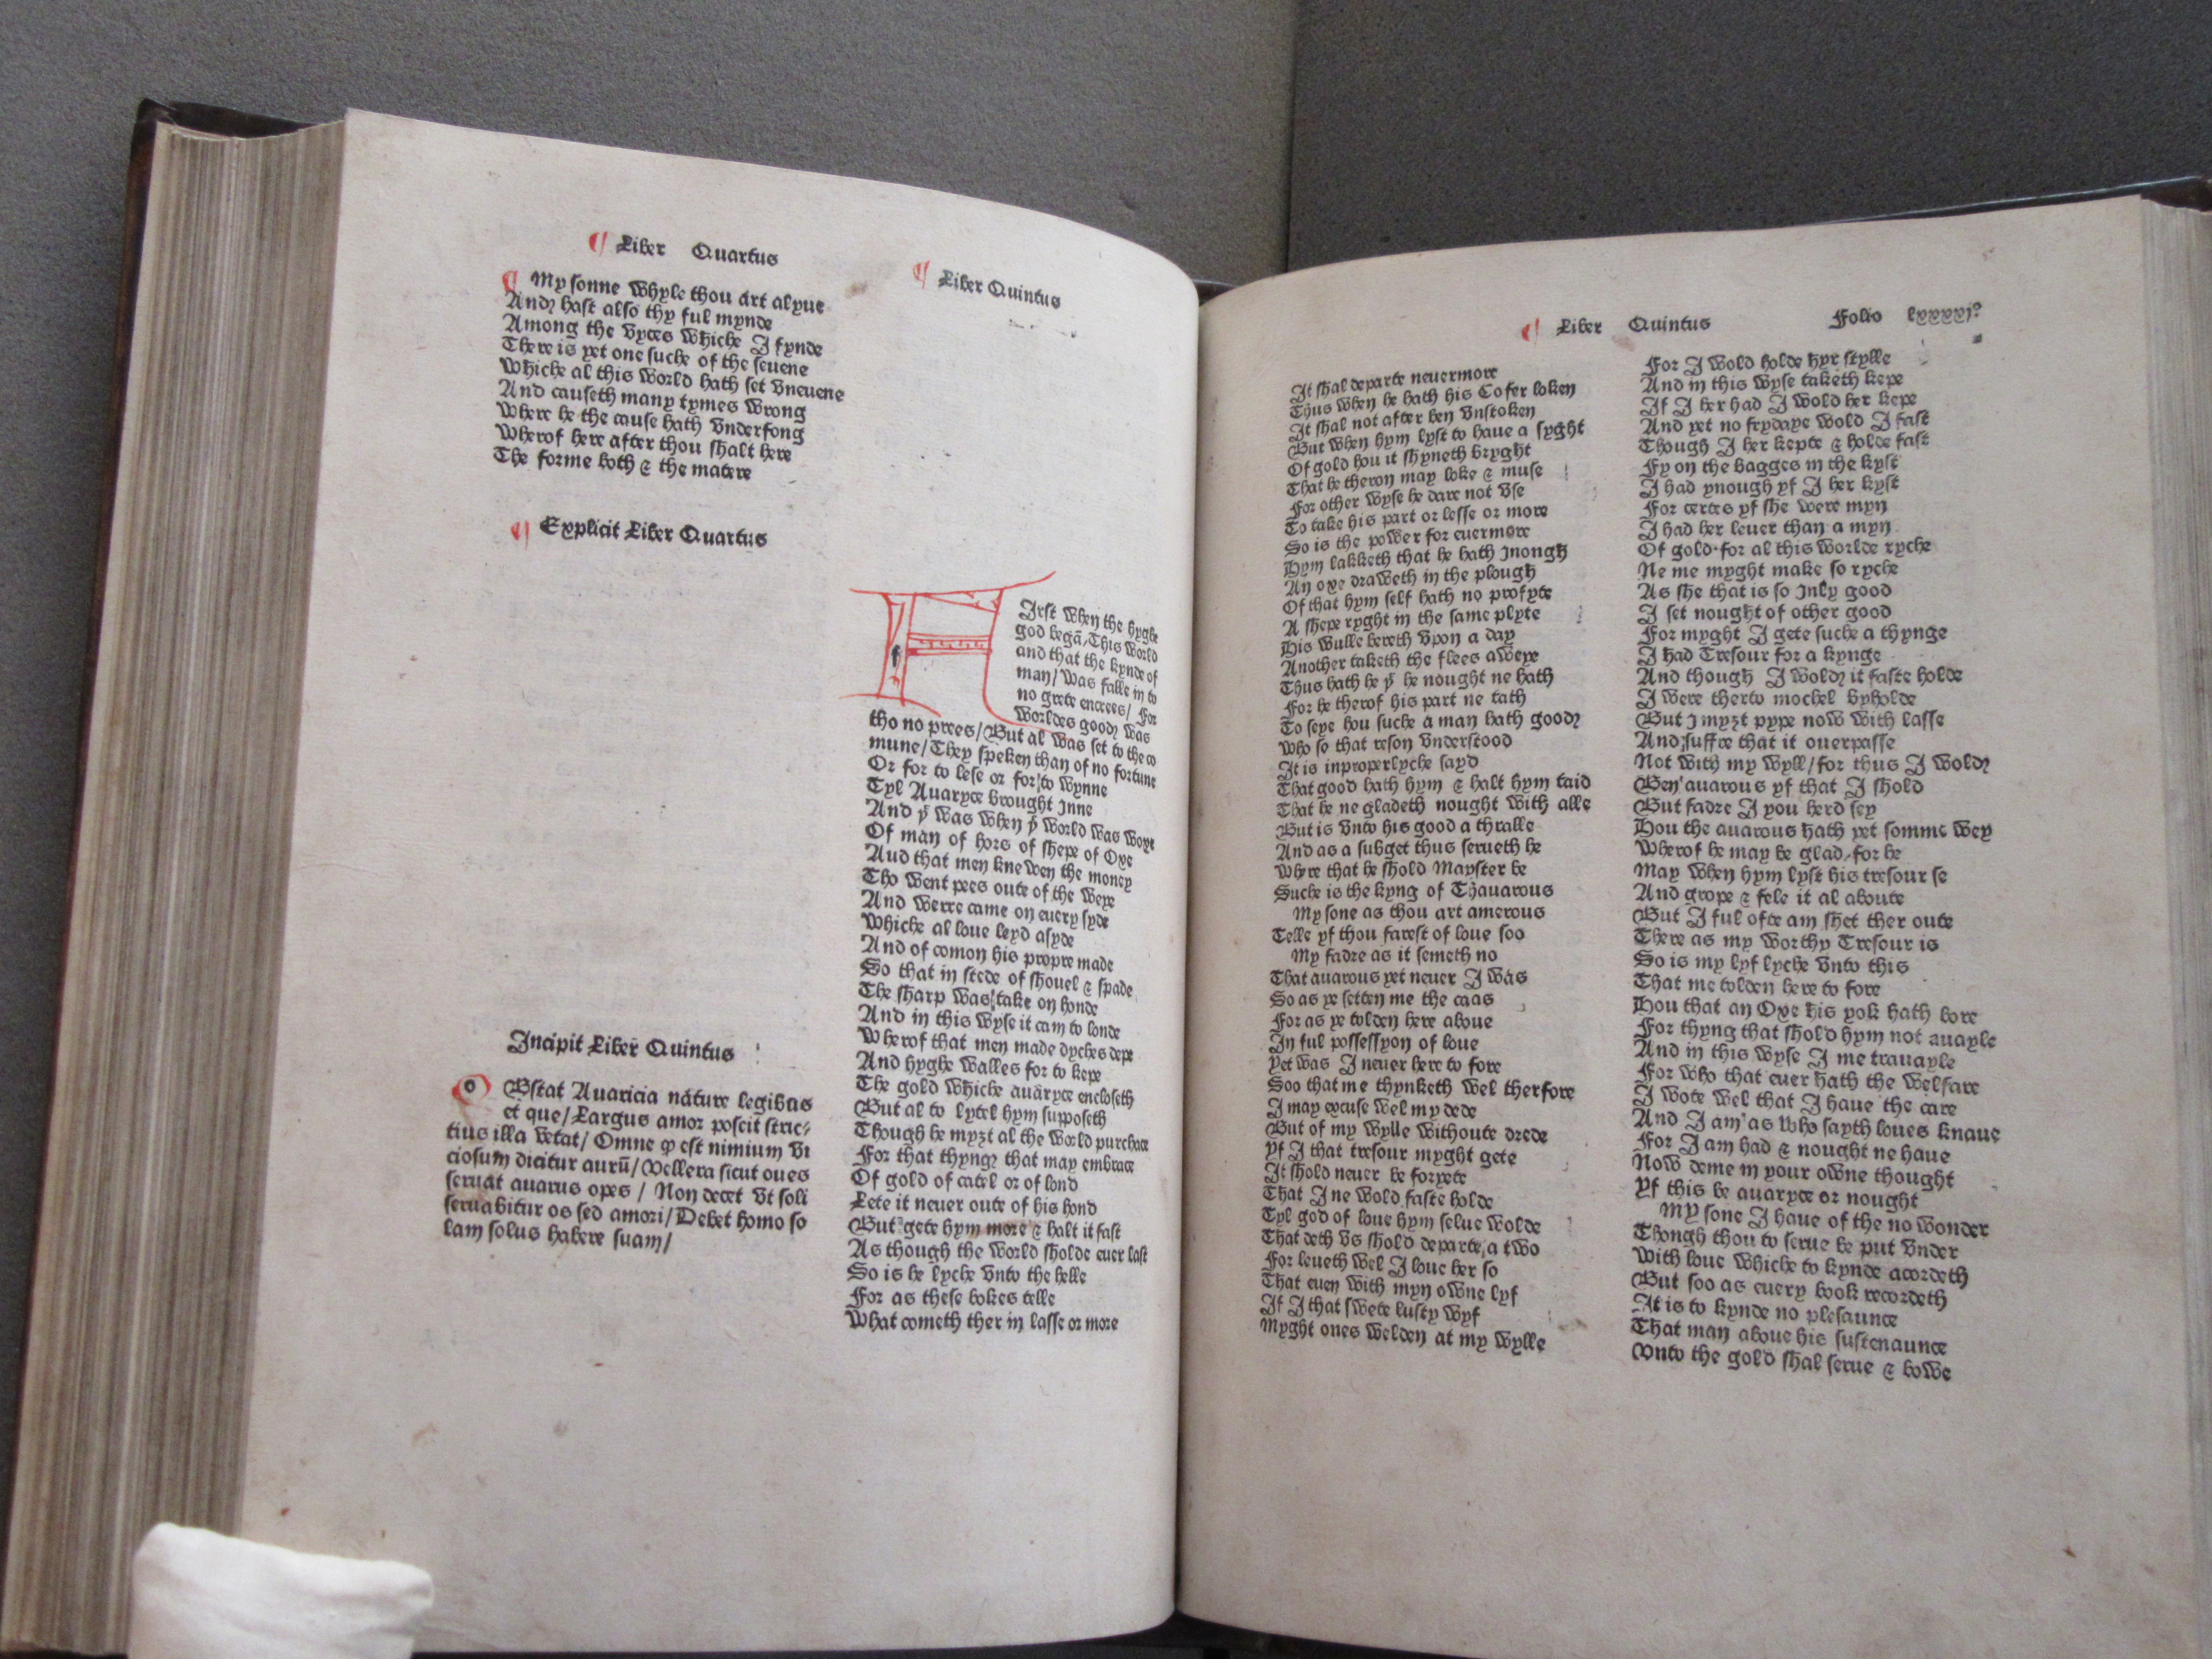 ¶ Liber Quartus
¶ My sonne whyle thou art alyue
And hast also thy ful mynde
Among the vyces whiche I fynde
There is yet one suche of the seuene
Whiche al this world hath set vneuene
And causeth many tymes wrong
Where he the cause hath vnderfong
Wherof here after thou shalt here
The forme both & the matere
¶ Explicit Liber Quartus
Incipit Liber Quintus
o Bstat Auaricia nature legibus
et que/ Largus amor poscit stric⸗
tius illa vetat/ Omne ꝙ est nimium vi
ciosum dicitur aurū/ Vellera sicut oues
seruat auarus opes / Non decet vt soli
seruabitur os sed amori/ Debet homo so
lam solus habere suam/
¶ Liber Quintus
F Irst when the hyghe
god begā, This world
and that the kynde of
man/ was falle in to
no grete encrees/ For
worldes good was
tho no prees/ But al was set to the co
mune/ They speken than of no fortune
Or for to lese or for to wynne
Tyl Auaryce brought Inne
And yͭ was when yͤ world was woxe
Of man of hors of shepe of Oxe
Aud that men knewen the money
Tho went pees oute of the weye
And werre came on euery syde
Whiche al loue leyd asyde
And of comon his propre made
So that in stede of shouel & spade
The sharp was take on honde
And in this wyse it cam to londe
Wherof that men made dyches depe
And hyghe walles for to kepe
The gold whiche auaryce encloseth
But al to lytel hym supposeth
Though he myȝt al the world purchace
For that thyng that may embrace
Of gold of catel or of lond
Lete it neuer oute of his hond
But gete hym more & halt it fast
As though the world sholde euer last
So is he lyche vnto the helle
For as these bokes telle
What cometh ther in lasse or more
¶ Liber Quintus Folio lxxxxjº
It shal departe neuermore
Thus when he hath his Cofer loken
It shal not after ben vnstoken
But when hym lyst to haue a syght
Of gold hou it shyneth bryght
That he theron may loke & muse
For other wyse he dare not vse
To take his part or lesse or more
So is the power for euermore
Hym lakketh that he hath Inongh
An oxe draweth in the plough
Of that hym self hath no profyte
A shepe ryght in the same plyte
His wulle bereth vpon a day
Another taketh the flees aweye
Thus hath he yͭ he nought ne hath
For he therof his part ne tath
To seye hou suche a man hath good
Who so that reson vnderstood
It is inproperlyche sayd
That good hath hym & halt hym taid
That he ne gladeth nought with alle
But is vnto his good a thralle
And as a subget thus serueth he
Where that he shold Mayster be
Suche is the kyng of Thauarous
My sone as thou art amerous
Telle yf thou farest of loue soo
My fadre as it semeth no
That auarous yet neuer I was
So as ye setten me the caas
For as ye tolden here aboue
In ful possessyon of loue
Yet was I neuer here to fore
Soo that me thynketh wel therfore
I may excuse wel my dede
But of my wylle withoute drede
Yf I that tresour myght gete
It shold neuer be forȝete
That I ne wold faste holde
Tyl god of loue hym selue wolde
That deth vs shold departe a two
For leueth wel I loue her so
That euen with myn owne lyf
If I that swete lusty wyf
Myght ones welden at my wylle
For I wold holde hyr stylle
And in this wyse taketh kepe
If I her had I wold her kepe
And yet no frydaye wold I fast
Though I her kepte & holde fast
Fy on the bagges in the kyst
I had ynough yf I her kyst
For certes yf she were myn
I had her leuer than a myn
Of gold·for al this worlde ryche
Ne me myght make so ryche
As she that is so Inly good
I set nought of other good
For myght I gete suche a thynge
I had Tresour for a kynge
And though I wold it faste holde
I were therto mochel byholde
But I myȝt pype now with lasse
And suffce that it ouerpasse
Not with my wyll/ for thus I wold
Ben auarous yf that I shold
But fadre I you herd sey
Hou the auarous hath yet somme wey
Wherof he may be glad, for he
May when hym lyst his tresour se
And grope & fele it al aboute
But I ful ofte am shet ther oute
There as my worthy Tresour is
So is my lyf lyche vnto this
That me tolden here to fore
Hou that an Oxe his yok hath bore
For thyng that shold hym not auayle
And in this wyse I me trauayle
For who that euer hath the welfare
I wote wel that I haue the care
And I am as who sayth loues knaue
For I am had & nought ne haue
Now deme in your owne thought
Yf this be auaryce or nought
My sone I haue of the no wonder
Thongh thou to serue be put vnder
With loue whiche to kynde acordeth
But soo as euery book recordeth
It is to kynde no plesaunce
That man aboue his sustenaunce
Vnto the gold shal serue & bowe